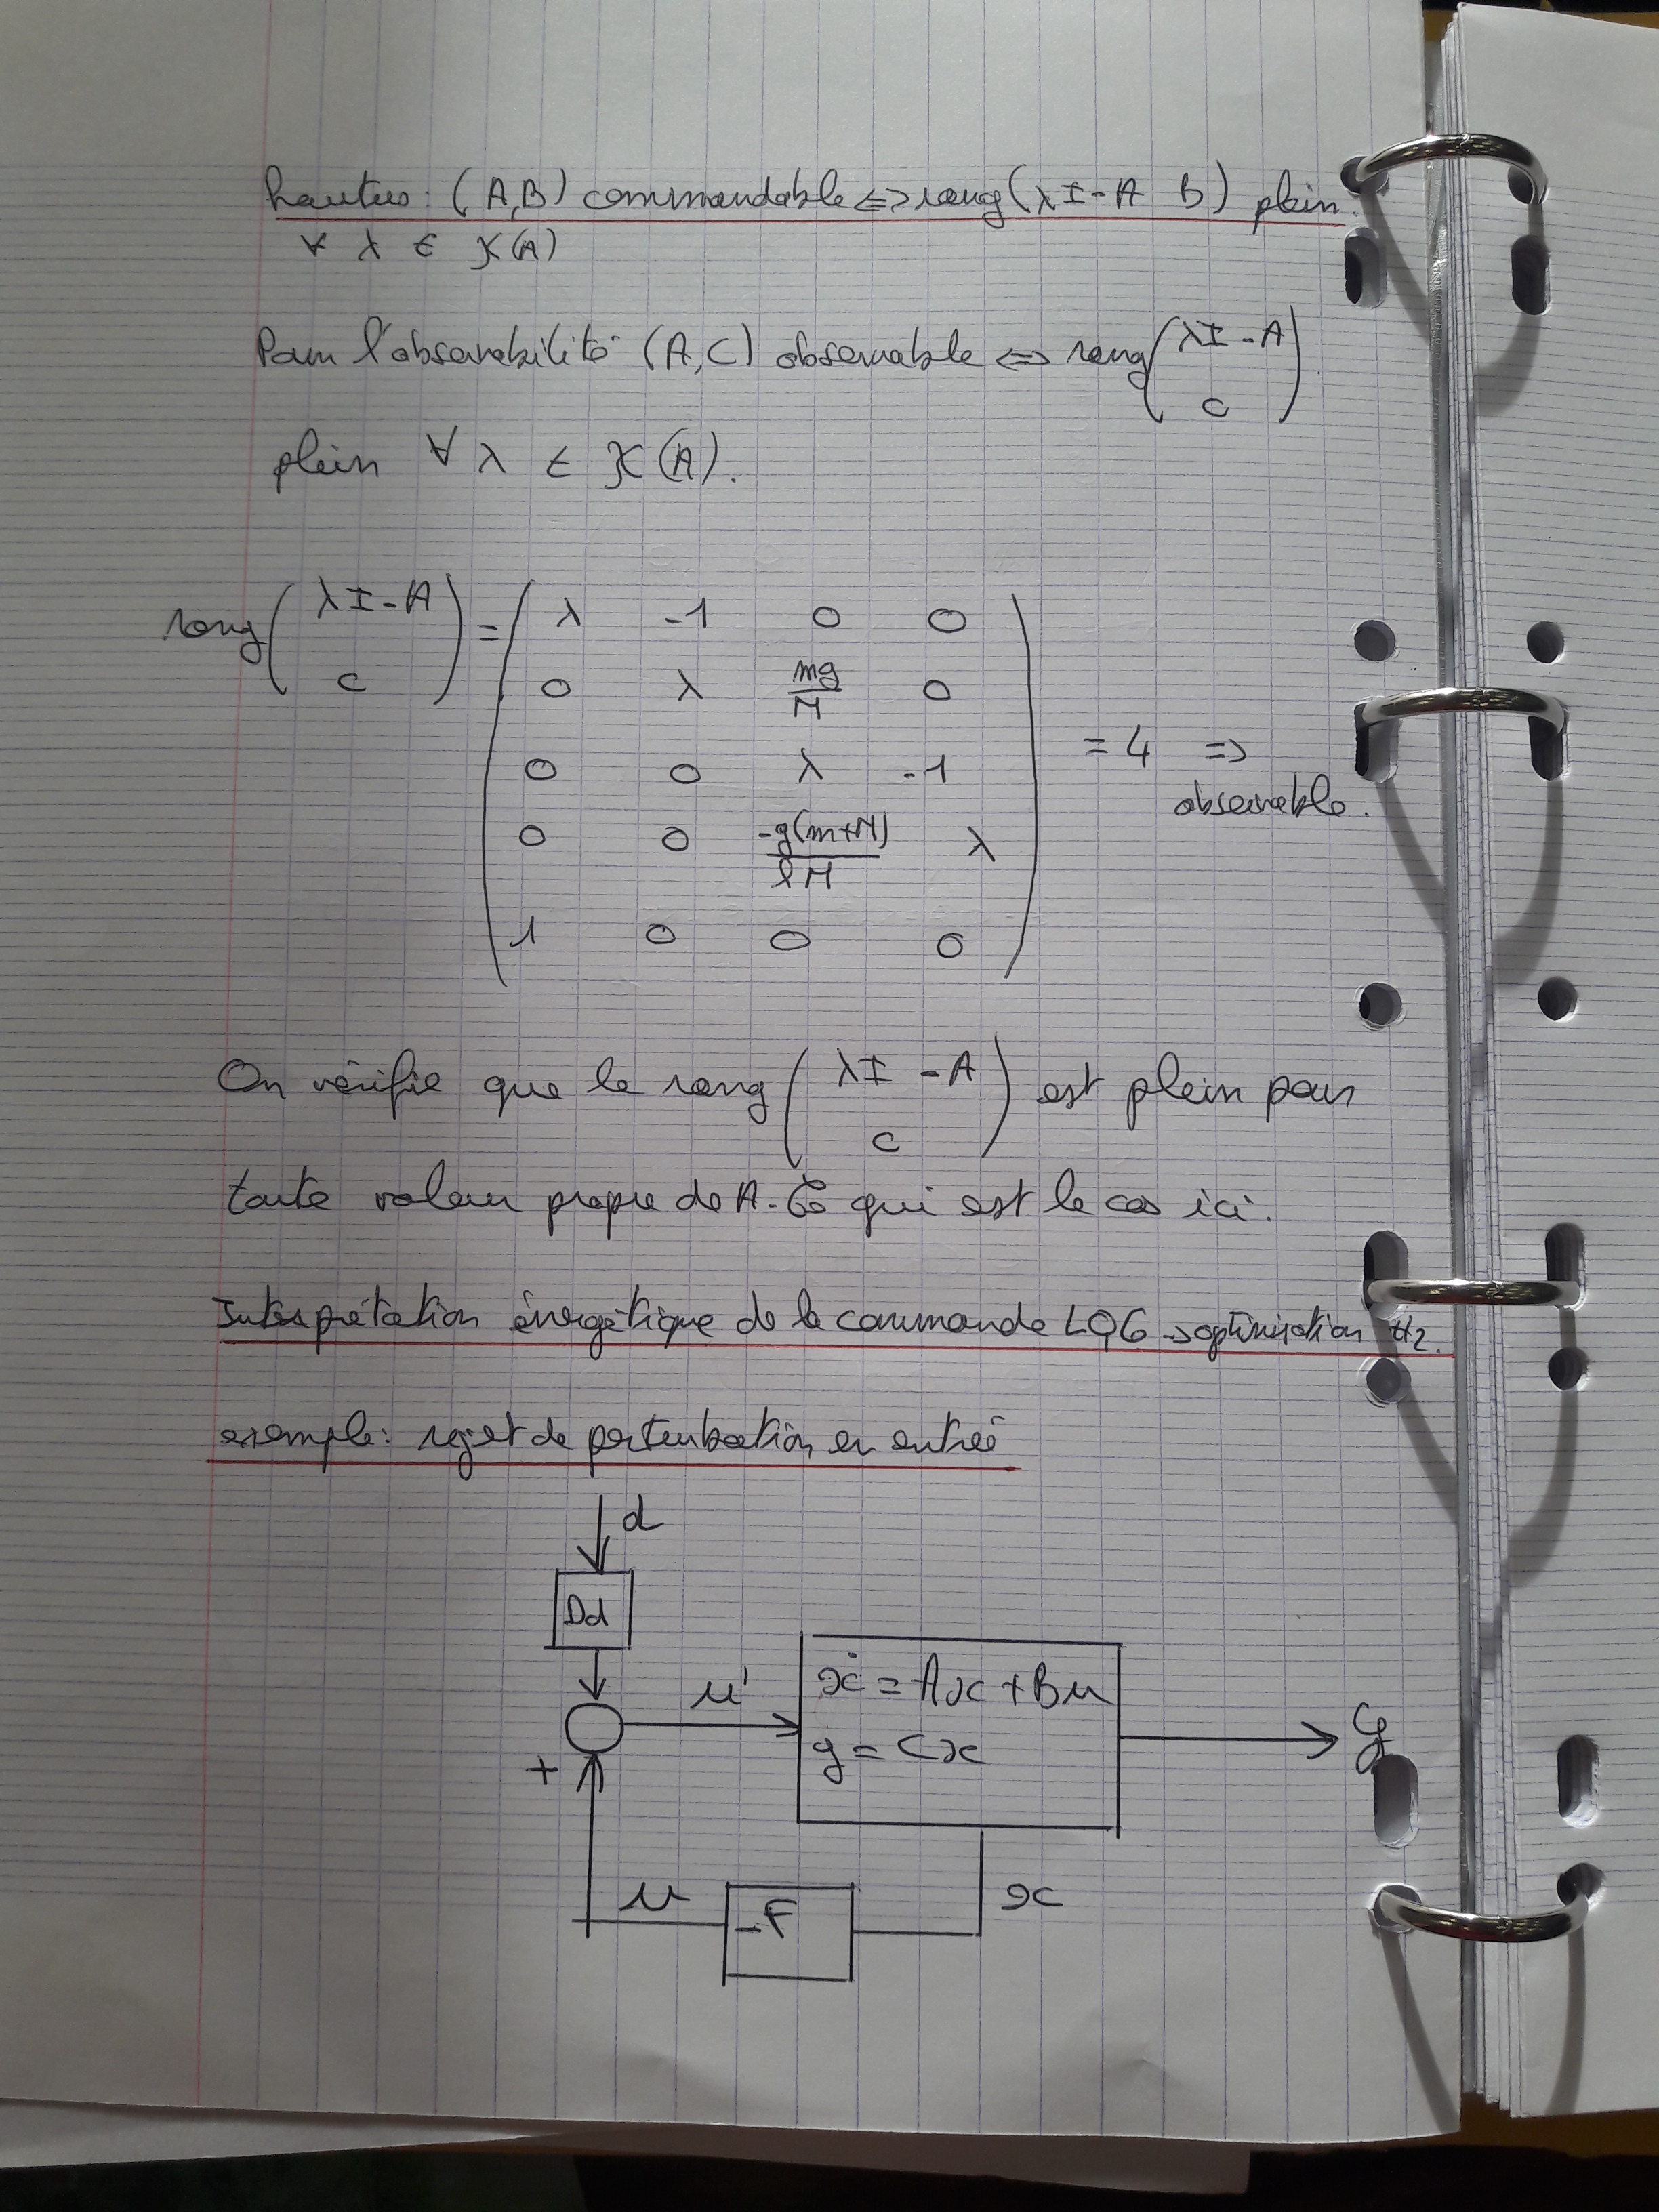 hautus : (A,B) commandable ⇔ rang(λI-A B) plein.
∀ λ ∈ χ(A)
Pour l'observabilité (A,C) observable ⇔ rang(λI-A
C)
plein ∀ λ ∈ χ(A).
rang(λI-A
C) = (λ -1 0 0
0 λ mg/M 0
0 0 λ -1
0 0 -g(m+M)/lM λ
1 0 0 0) = 4 ⇒
observable.
On vérifie que le rang(λI-A
C) est plein pour
toute valeur propre de A. Ce qui est le cas ici.
Interprétation énergétique de la commande LQG → optimisation H₂.
exemple : rejet de perturbation en entrée
d
Dd
u'
ẋ = Ax + Bu
y = Cx
y
+
u
-F
x